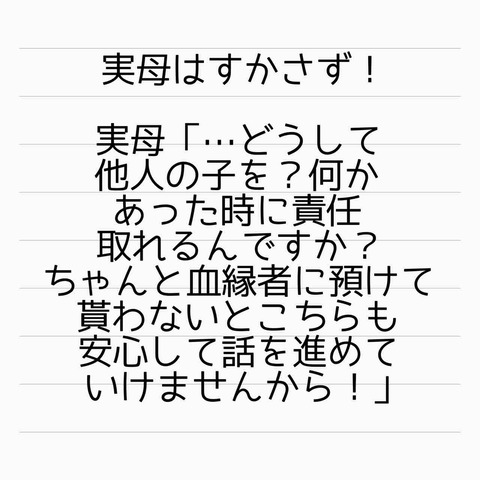 実母はすかさず！
実母「…どうして
他人の子を？何か
あった時に責任
取れるんですか？
ちゃんと血縁者に預けて
貰わないとこちらも
安心して話を進めて
いけませんから！」